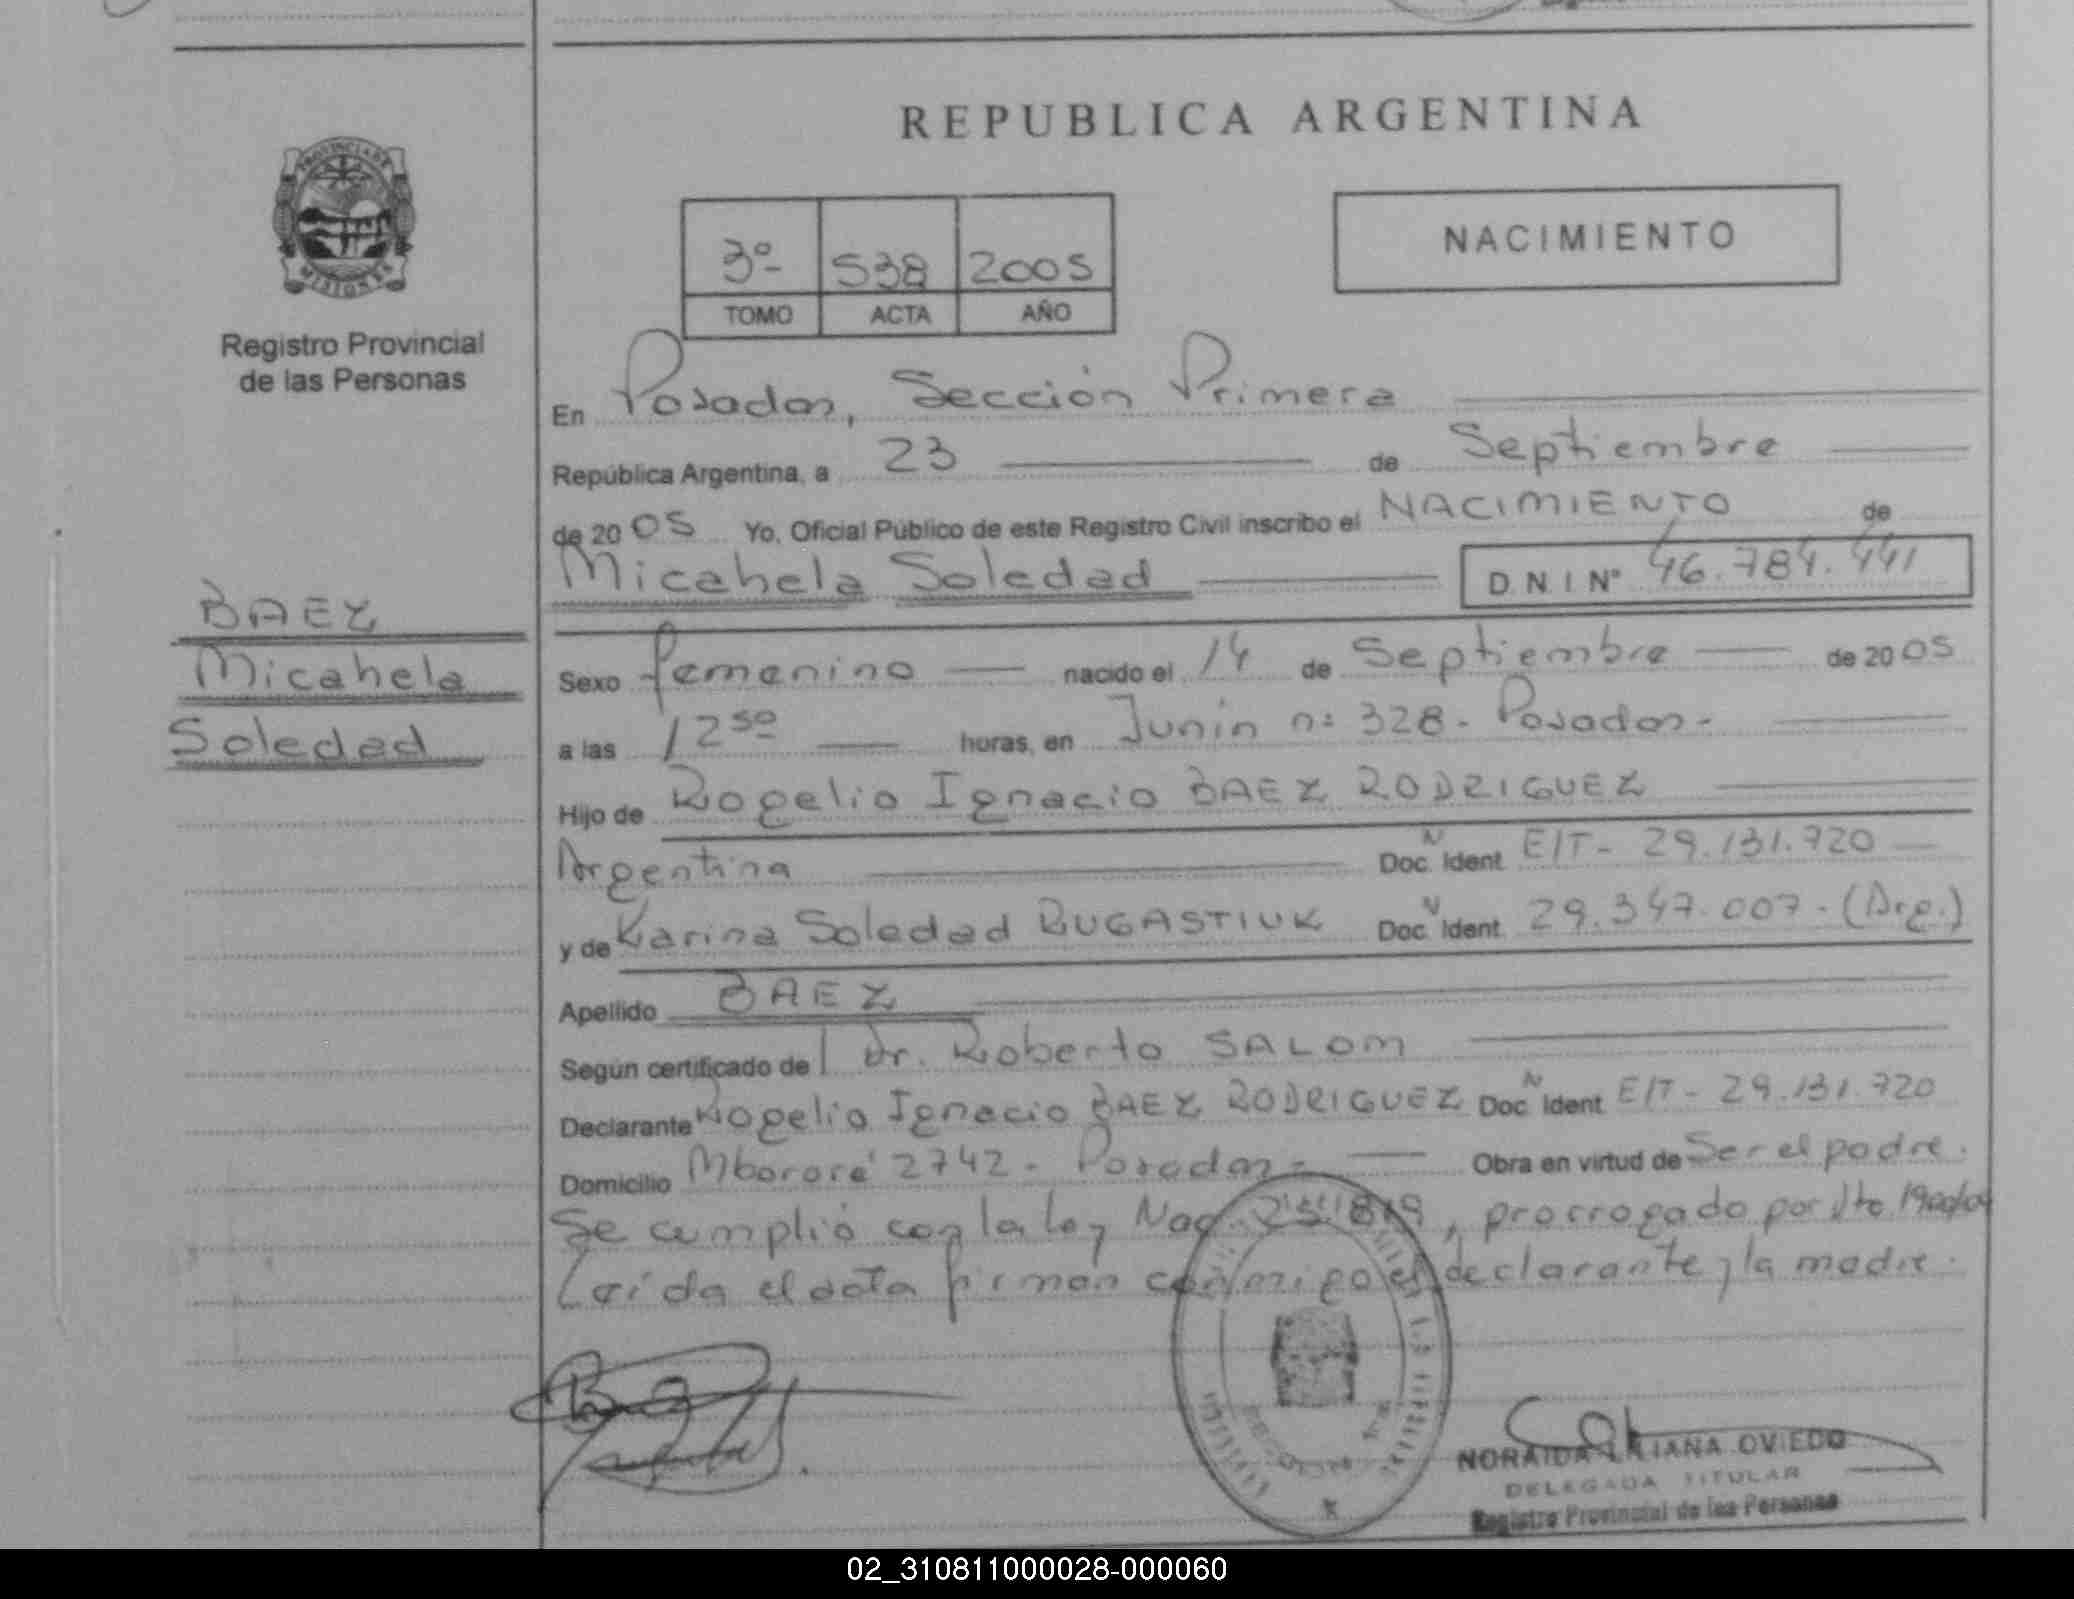 REPUBLICA ARGENTINA
PROVINCIA DE
MISIONES
Registro Provincial
de las Personas
3º 538 2005
TOMO ACTA AÑO
NACIMIENTO
En Posadas, Sección Primera
República Argentina, a 23 de Septiembre
de 20 05 Yo, Oficial Público de este Registro Civil inscribo el NACIMIENTO de
Micahela Soledad D.N.I Nº 46.784.441
BAEZ
Micahela
Soledad
Sexo femenino nacido el 14 de Septiembre de 20 05
a las 12 50 horas, en Junín nº 328 - Posadas -
Hijo de Rogelio Ignacio BAEZ RODRIGUEZ
Argentina Doc. N Ident. E/T - 29.131.720
y de Karina Soledad RUGASTIUK Doc. N Ident. 29.347.007 - (Arg.)
Apellido BAEZ
Según certificado de Dr. Roberto SALOM
Declarante Rogelio Ignacio BAEZ RODRIGUEZ Doc. N Ident. E/T - 29.131.720
Domicilio Mbororé 2742 - Posadas - Obra en virtud de Ser el padre.
Se cumplió con la ley Nac. 25.819, prorrogado por dto
Leída el acta firman conmigo el declarante y la madre.
NORAIDA LILIANA OVIEDO
DELEGADA TITULAR
Registro Provincial de las Personas
02_310811000028-000060